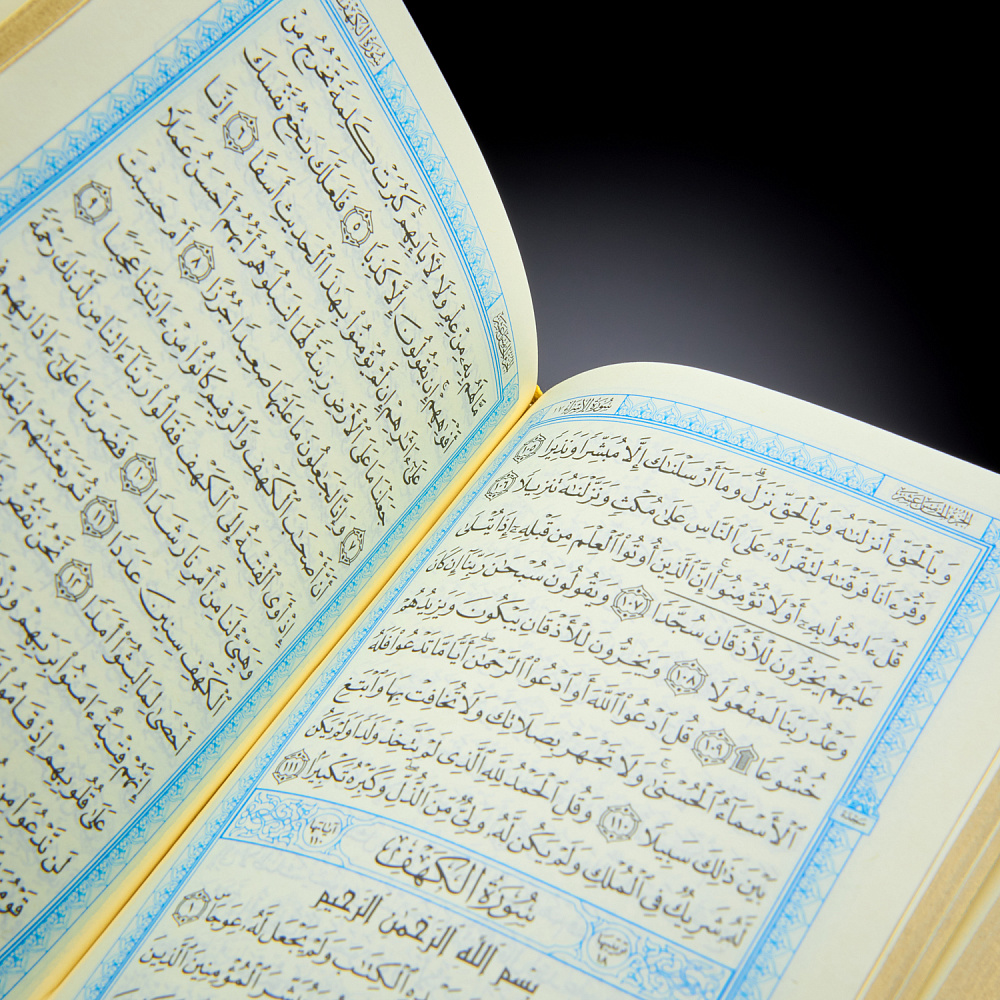 سُورَةُ الإِسْرَاءِ ١٧
الجُزْءُ الخَامِسَ عَشَرَ
وَبِٱلْحَقِّ أَنزَلْنَٰهُ وَبِٱلْحَقِّ نَزَلَ ۗ وَمَآ أَرْسَلْنَٰكَ إِلَّا مُبَشِّرًا وَنَذِيرًا ١٠٥
وَقُرْءَانًا فَرَقْنَٰهُ لِتَقْرَأَهُۥ عَلَى ٱلنَّاسِ عَلَىٰ مُكْثٍ وَنَزَّلْنَٰهُ تَنزِيلًا ١٠٦
قُلْ ءَامِنُوا۟ بِهِۦٓ أَوْ لَا تُؤْمِنُوٓا۟ ۚ إِنَّ ٱلَّذِينَ أُوتُوا۟ ٱلْعِلْمَ مِن قَبْلِهِۦٓ إِذَا يُتْلَىٰ
عَلَيْهِمْ يَخِرُّونَ لِلْأَذْقَانِ سُجَّدًا ١٠٧ وَيَقُولُونَ سُبْحَٰنَ رَبِّنَآ إِن كَانَ
وَعْدُ رَبِّنَا لَمَفْعُولًا ١٠٨ وَيَخِرُّونَ لِلْأَذْقَانِ يَبْكُونَ وَيَزِيدُهُمْ
خُشُوعًا ۩ ١٠٩ قُلِ ٱدْعُوا۟ ٱللَّهَ أَوِ ٱدْعُوا۟ ٱلرَّحْمَٰنَ ۖ أَيًّا مَّا تَدْعُوا۟ فَلَهُ
ٱلْأَسْمَآءُ ٱلْحُسْنَىٰ ۚ وَلَا تَجْهَرْ بِصَلَاتِكَ وَلَا تُخَافِتْ بِهَا وَٱبْتَغِ
بَيْنَ ذَٰلِكَ سَبِيلًا ١١٠ وَقُلِ ٱلْحَمْدُ لِلَّهِ ٱلَّذِى لَمْ يَتَّخِذْ وَلَدًا وَلَمْ يَكُن
لَّهُۥ شَرِيكٌ فِى ٱلْمُلْكِ وَلَمْ يَكُن لَّهُۥ وَلِىٌّ مِّنَ ٱلذُّلِّ ۖ وَكَبِّرْهُ تَكْبِيرًا ١١١
سجدة
ترتيبها ١٨
سُورَةُ الكَهْفِ
آياتها ١١٠
بِسْمِ ٱللَّهِ ٱلرَّحْمَٰنِ ٱلرَّحِيمِ
ٱلْكِتَٰبَ وَلَمْ يَجْعَل لَّهُۥ عِوَجَا ١
ٱلْمُؤْمِنِينَ ٱلَّذِينَ
سُورَةُ الكَهْفِ
مَّا لَهُم بِهِۦ مِنْ عِلْمٍ وَلَا لِءَابَآئِهِمْ ۚ كَبُرَتْ كَلِمَةً تَخْرُجُ مِنْ
أَفْوَٰهِهِمْ ۚ إِن يَقُولُونَ إِلَّا كَذِبًا ٥ فَلَعَلَّكَ بَٰخِعٌ نَّفْسَكَ
عَلَىٰٓ ءَاثَٰرِهِمْ إِن لَّمْ يُؤْمِنُوا۟ بِهَٰذَا ٱلْحَدِيثِ أَسَفًا ٦ إِنَّا
جَعَلْنَا مَا عَلَى ٱلْأَرْضِ زِينَةً لَّهَا لِنَبْلُوَهُمْ أَيُّهُمْ أَحْسَنُ عَمَلًا
٧ وَإِنَّا لَجَٰعِلُونَ مَا عَلَيْهَا صَعِيدًا جُرُزًا ٨ أَمْ حَسِبْتَ
أَنَّ أَصْحَٰبَ ٱلْكَهْفِ وَٱلرَّقِيمِ كَانُوا۟ مِنْ ءَايَٰتِنَا عَجَبًا ٩
إِذْ أَوَى ٱلْفِتْيَةُ إِلَى ٱلْكَهْفِ فَقَالُوا۟ رَبَّنَآ ءَاتِنَا مِن لَّدُنكَ رَحْمَةً
وَهَيِّئْ لَنَا مِنْ أَمْرِنَا رَشَدًا ١٠ فَضَرَبْنَا عَلَىٰٓ ءَاذَانِهِمْ
ٱلْكَهْفِ سِنِينَ عَدَدًا ١١ ثُمَّ بَعَثْنَٰهُمْ لِنَعْلَمَ
أَحْصَىٰ لِمَا لَبِثُوٓا۟ أَمَدًا ١٢ نَّحْنُ نَقُصُّ
إِنَّهُمْ فِتْيَةٌ ءَامَنُوا۟ بِرَبِّهِمْ
عَلَىٰ قُلُوبِهِمْ إِذْ قَامُوا۟
لَن نَّدْعُوَا۟ مِن